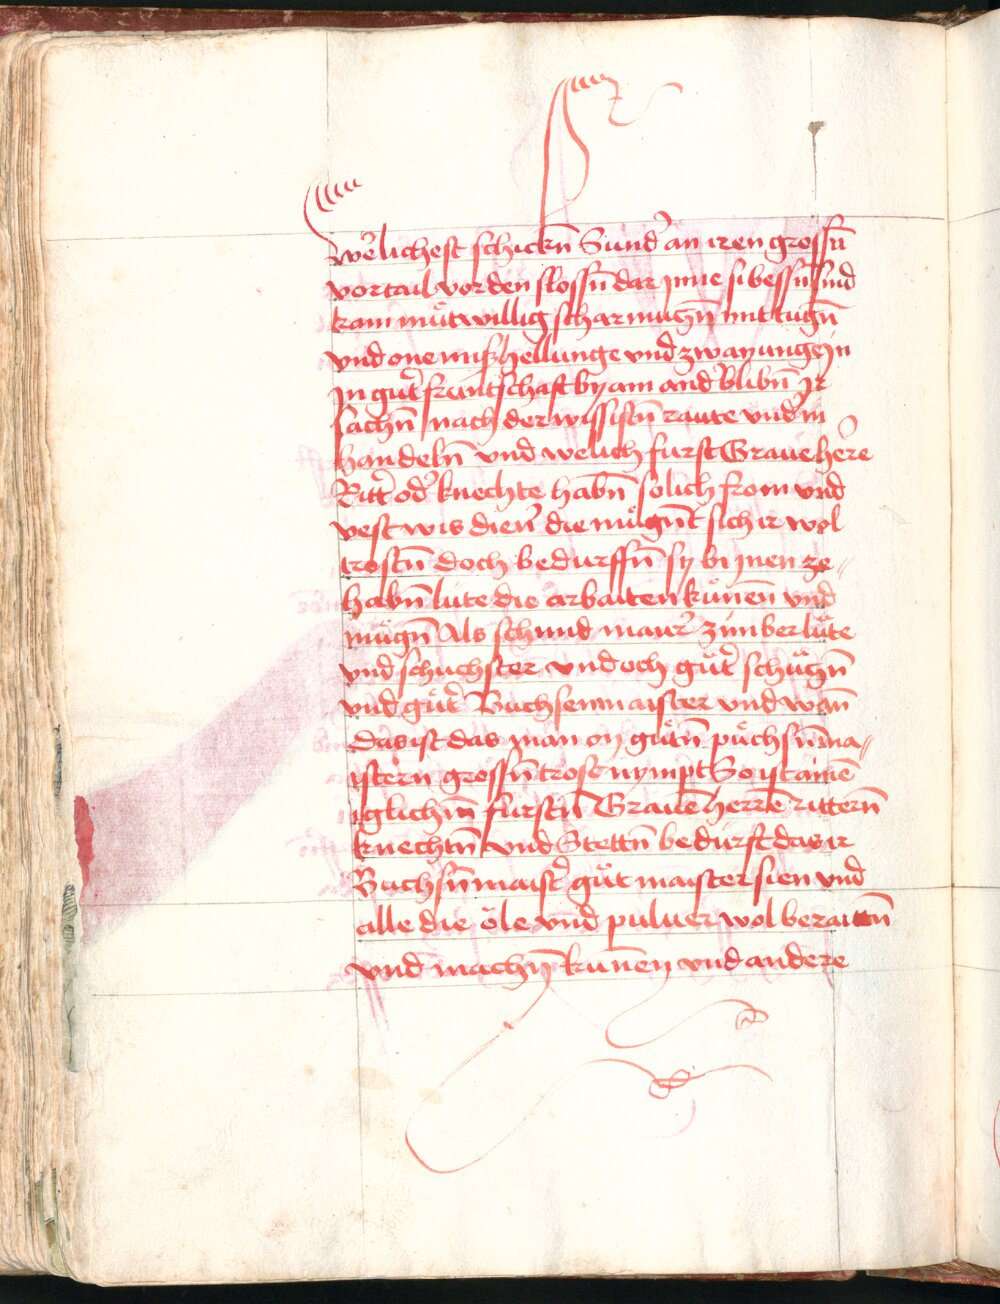 werlichest schickn̄ Sund̾ an iren grossn̄
vortail vor den slossn̄ dar Inne si bessn̄ sind
kain můtwillig scharmuczn̄ mit tugn̄
vnd one miszhellunge vnd zwayunge in
In gůt̾ fruntschaft by ain and̾ blibn̄ Ir
sachn̄ nach der wissistn̄ raute vnd̾ in
handeln̄ vnd welich furst Graue here
Ritt̾ od̾ knechte habn̄ solich from vnd
vest wis dien̾ die můgn̄t sich ir wol
trostn̄ doch bedurffn̄ sy bi Inen ze=
habn̄ lute die arbaiten kůnen̄ vnd
můgn̄ Als schmid maur̾ zimberlůte
vnd schuchster vnd och gůt̾ schůczn̄
vnd gůt̾ Buchsenmaister vnd wan̄
das ist das man ön gůtn̄ půchsn̄ma=
istern grossn̄ trost nympt So ist aine̅
iglichn̄ fursten̄ Graue̅ herre̅ rittern̄
knechtn̄ vnd Stettn̄ bedurft das ir
Buchsn̄maist̾ gůt maister sien vnd
alle die öle vnd puluer wol beraittn̄
vnd machn̄ kunnen vnd andere